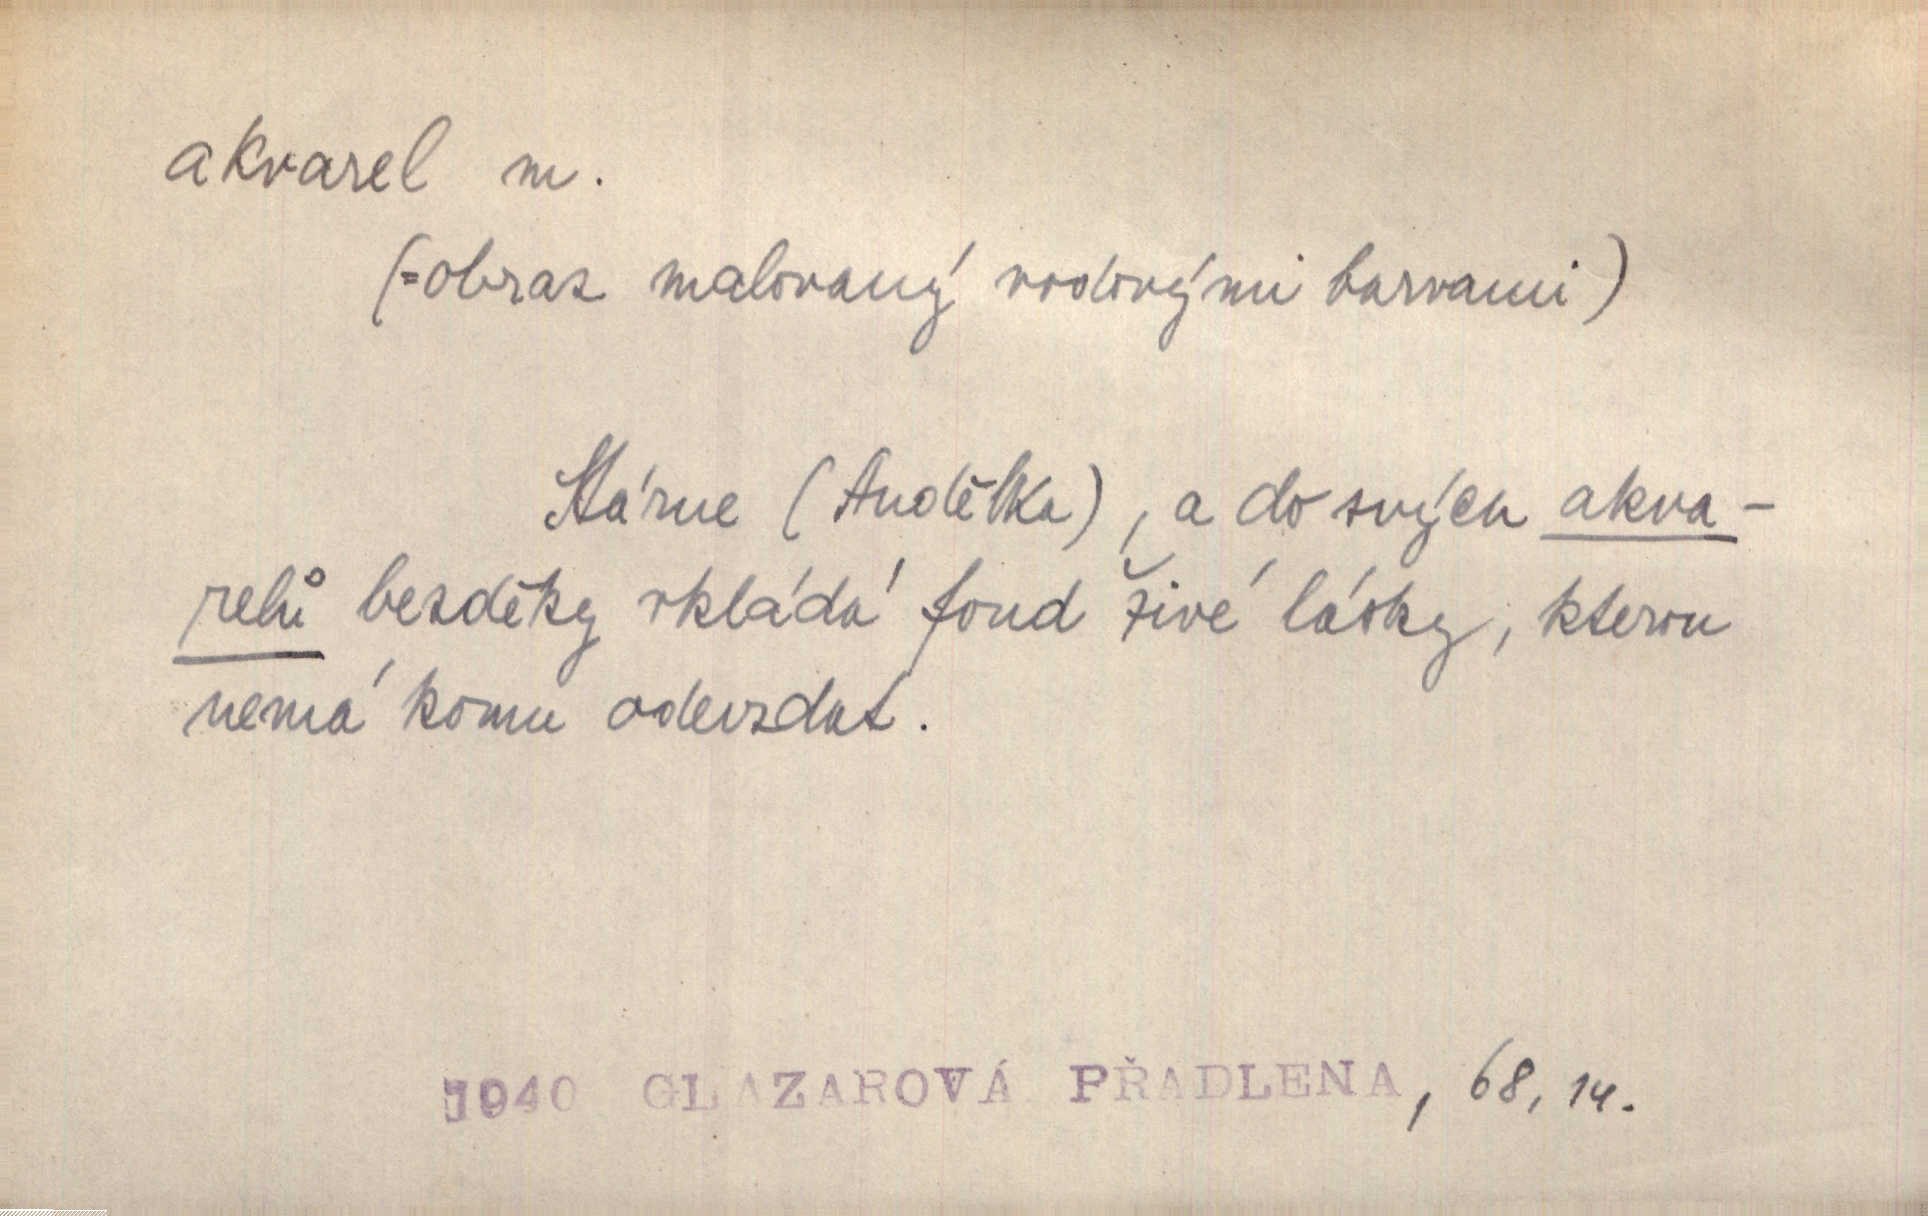 akvarel m.
(=obraz malovaný vodovými barvami)
Stárne (Andělka), a do svých akva-
relů bezděky vkládá fond živé lásky, kterou
nemá komu odevzdat.
1940 GLAZAROVÁ PŘADLENA, 68, 14.